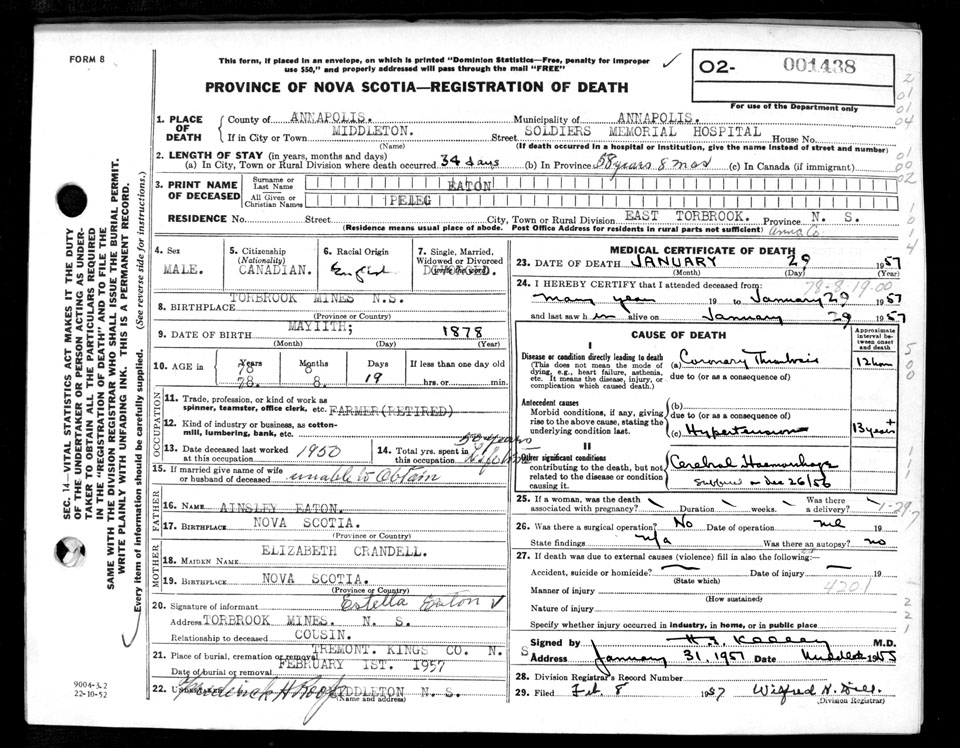 FORM 8
This form, if placed in an envelope, on which is printed "Dominion Statistics—Free, penalty for improper
use $50," and properly addressed will pass through the mail "FREE"
PROVINCE OF NOVA SCOTIA—REGISTRATION OF DEATH
O2- 001438
For use of the Department only
1. PLACE OF DEATH
County of ANNAPOLIS. Municipality of ANNAPOLIS.
If in City or Town MIDDLETON. Street SOLDIERS MEMORIAL HOSPITAL House No.
(Name) (If death occurred in a hospital or institution, give the name instead of street and number)
2. LENGTH OF STAY (in years, months and days)
(a) In City, Town or Rural Division where death occurred 34 days (b) In Province 58 years 8 mos (c) In Canada (if immigrant)
3. PRINT NAME OF DECEASED
Surname or Last Name EATON
All Given or Christian Names PELEG
RESIDENCE No. Street City, Town or Rural Division EAST TORBROOK. Province N. S.
(Residence means usual place of abode. Post Office Address for residents in rural parts not sufficient) Anna Co
4. Sex
MALE.
5. Citizenship
(Nationality)
CANADIAN.
6. Racial Origin
English
7. Single, Married,
Widowed or Divorced
(write the word)
8. BIRTHPLACE TORBROOK MINES N.S.
(Province or Country)
9. DATE OF BIRTH MAY11TH; 1878
(Month) (Day) (Year)
10. AGE in
Years Months Days If less than one day old
78
78. 8. 19 hrs. or min.
OCCUPATION
11. Trade, profession, or kind of work as
spinner, teamster, office clerk, etc. FARMER(RETIRED)
12. Kind of industry or business, as cotton-
mill, lumbering, bank, etc.
13. Date deceased last worked
at this occupation 1950
14. Total yrs. spent in
this occupation 50 years
Lifetime
15. If married give name of wife
or husband of deceased unable to Obtain
FATHER
16. NAME AINSLEY EATON.
17. BIRTHPLACE NOVA SCOTIA.
(Province or Country)
MOTHER
18. MAIDEN NAME ELIZABETH CRANDELL.
19. BIRTHPLACE NOVA SCOTIA.
(Province or Country)
20. Signature of informant Estella Eaton
Address TORBROOK MINES. N. S.
Relationship to deceased COUSIN.
21. Place of burial, cremation or removal TREMONT. KINGS CO. N. S
Date of burial or removal FEBRUARY 1ST. 1957
22. MIDDLETON N. S.
(Name and address)
MEDICAL CERTIFICATE OF DEATH
23. DATE OF DEATH JANUARY 29 1957
(Month) (Day) (Year)
78-8-19-00
24. I HEREBY CERTIFY that I attended deceased from:
many years 19 to January 29 1957
and last saw him alive on January 29 1957
CAUSE OF DEATH
Approximate interval between onset and death
I
Disease or condition directly leading to death
(This does not mean the mode of dying, e.g., heart failure, asthenia, etc. It means the disease, injury, or complication which caused death.)
(a) Coronary Thrombosis 12 hours
due to (or as a consequence of)
Antecedent causes
Morbid conditions, if any, giving rise to the above cause, stating the underlying condition last.
(b)
due to (or as a consequence of)
(c) Hypertension 13 years +
II
Other significant conditions
contributing to the death, but not related to the disease or condition causing it.
Cerebral Haemorrhage
suffered on Dec 26/56
25. If a woman, was the death
associated with pregnancy? Duration weeks. Was there
a delivery?
1-29-7
26. Was there a surgical operation? No Date of operation nil 19
State findings n/a Was there an autopsy? no
27. If death was due to external causes (violence) fill in also the following:—
Accident, suicide or homicide? Date of injury 19
(State which)
Manner of injury 4201
(How sustained)
Nature of injury
Specify whether injury occurred in industry, in home, or in public place
Signed by M.D.
Address January 31, 1957 Date
28. Division Registrar's Record Number
29. Filed Feb. 8 1957
(Division Registrar)
SEC. 14—VITAL STATISTICS ACT MAKES IT THE DUTY
OF THE UNDERTAKER OR PERSON ACTING AS UNDER-
TAKER TO OBTAIN ALL THE PARTICULARS REQUIRED
IN THE "REGISTRATION OF DEATH" AND TO FILE THE
SAME WITH THE DIVISION REGISTRAR WHO SHALL ISSUE THE BURIAL PERMIT.
WRITE PLAINLY WITH UNFADING INK. THIS IS A PERMANENT RECORD.
Every item of information should be carefully supplied. (See reverse side for instructions.)
9004-3.2
22-10-52